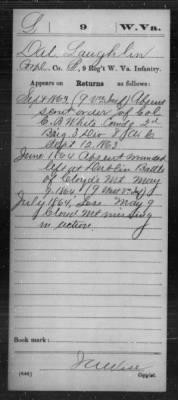 L 9 W. Va.
Dal Laughlin
Corpl., Co. B, 9 Reg't W. Va. Infantry.
Appears on Returns as follows:
Sept 1863 (9 Va Inf) Absent
scout order of Col
C. B. White Comdg 2d
Brig 3 Div 8 A.C.
Sept 12, 1863
June 1864 Absent wounded
left at Dublin Battle
of Cloyds Mt May
9. 1864 (9 West Va Inf)
July 1864, Loss. May 9
Cloyd Mt missing
in action.
Book mark:
(646) Copyist.